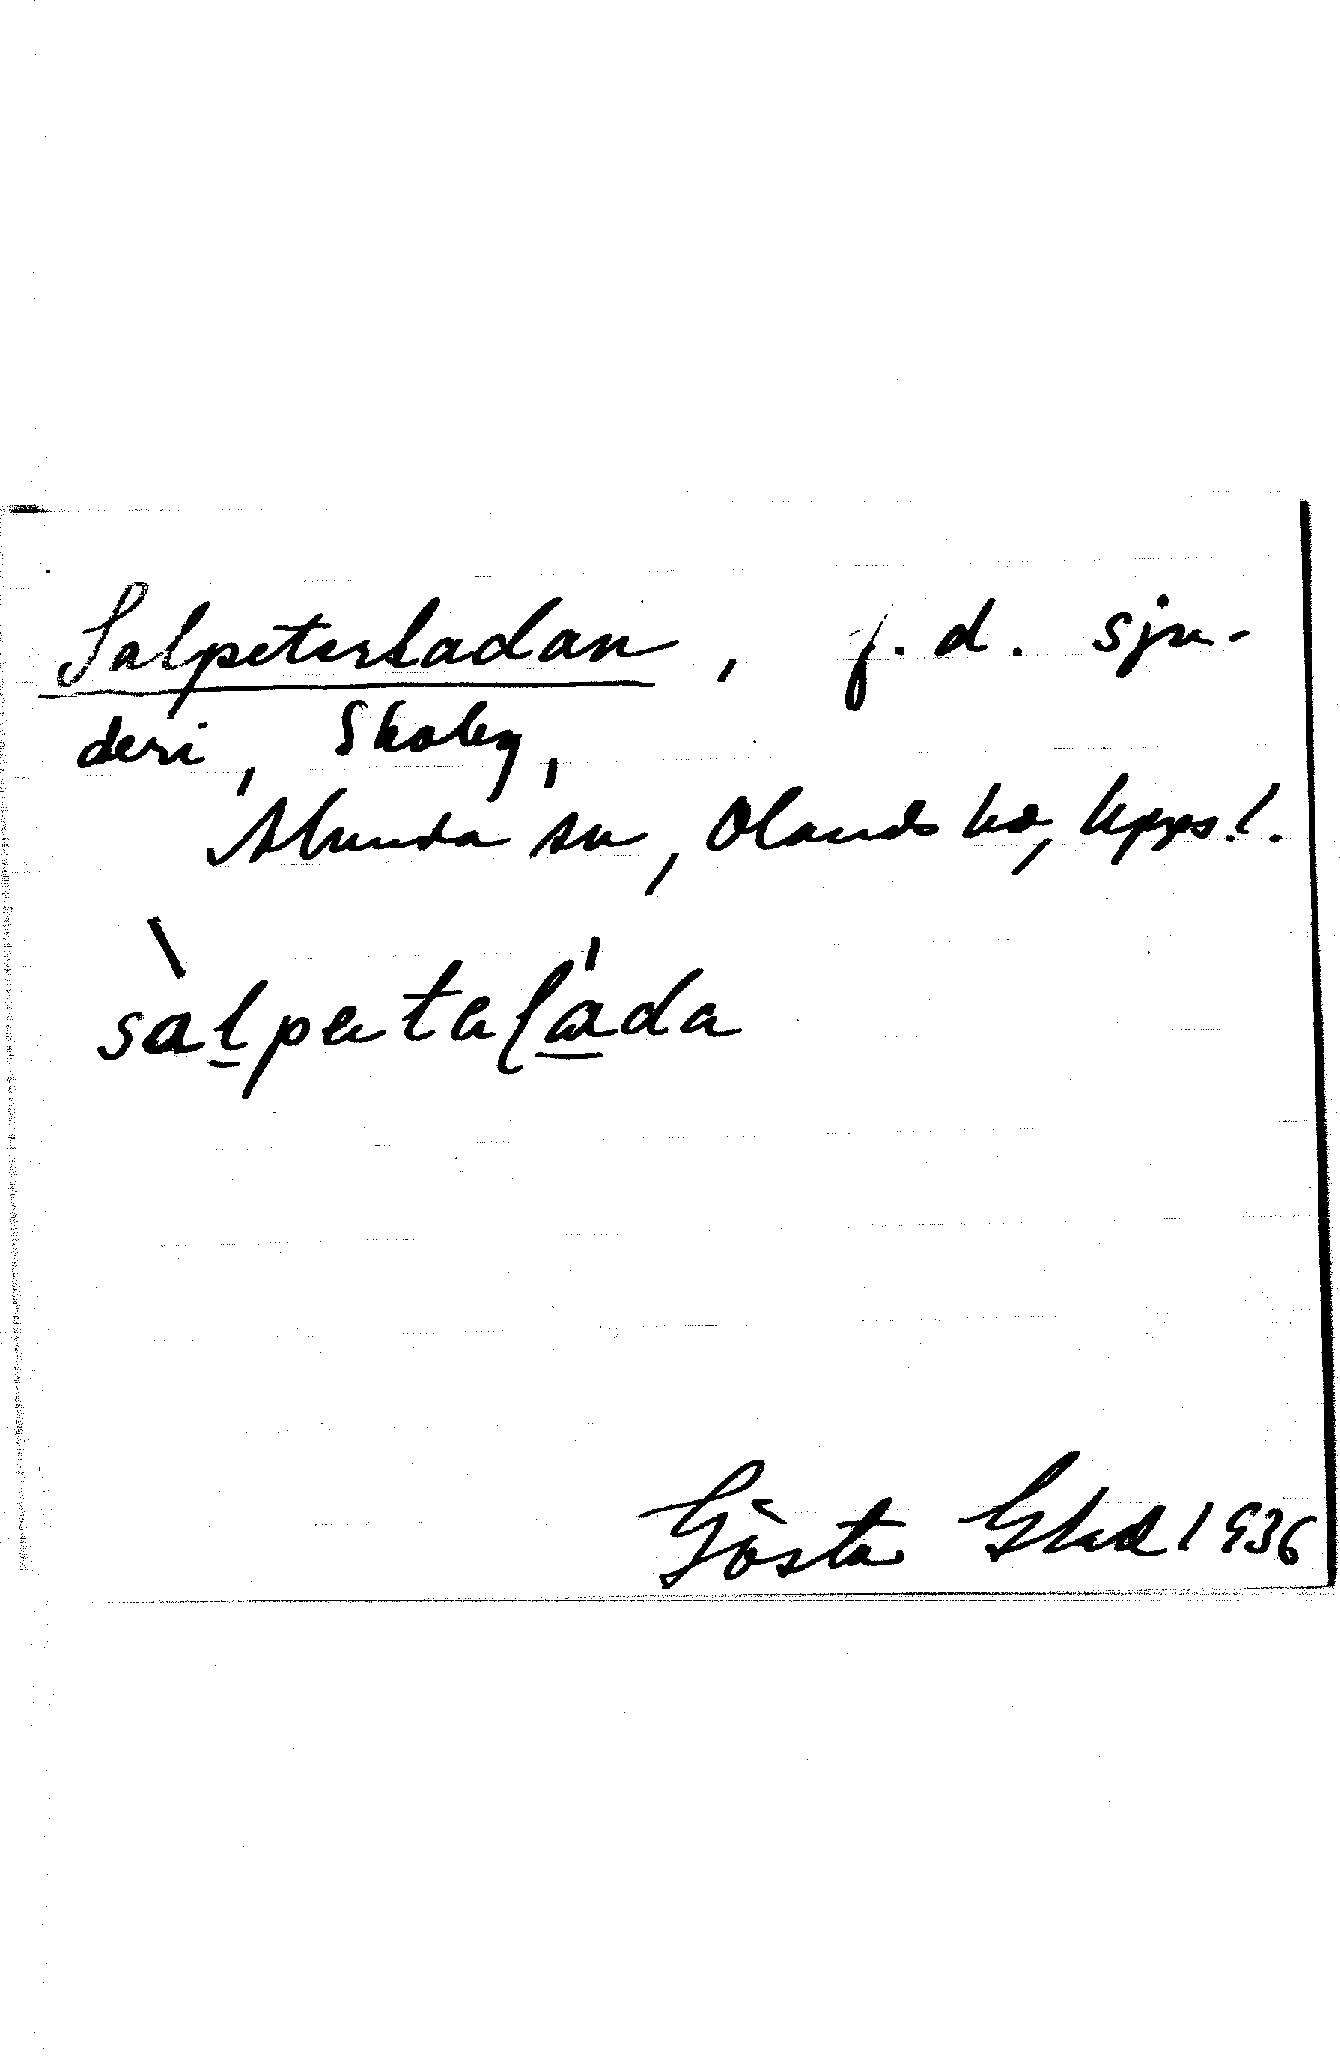 Salpeterladan, f.d. sju-
deri, Skoby,
Alunda sn, Olands hd, Upps. l.
sàlpetaláda
Gösta Ekd 1936